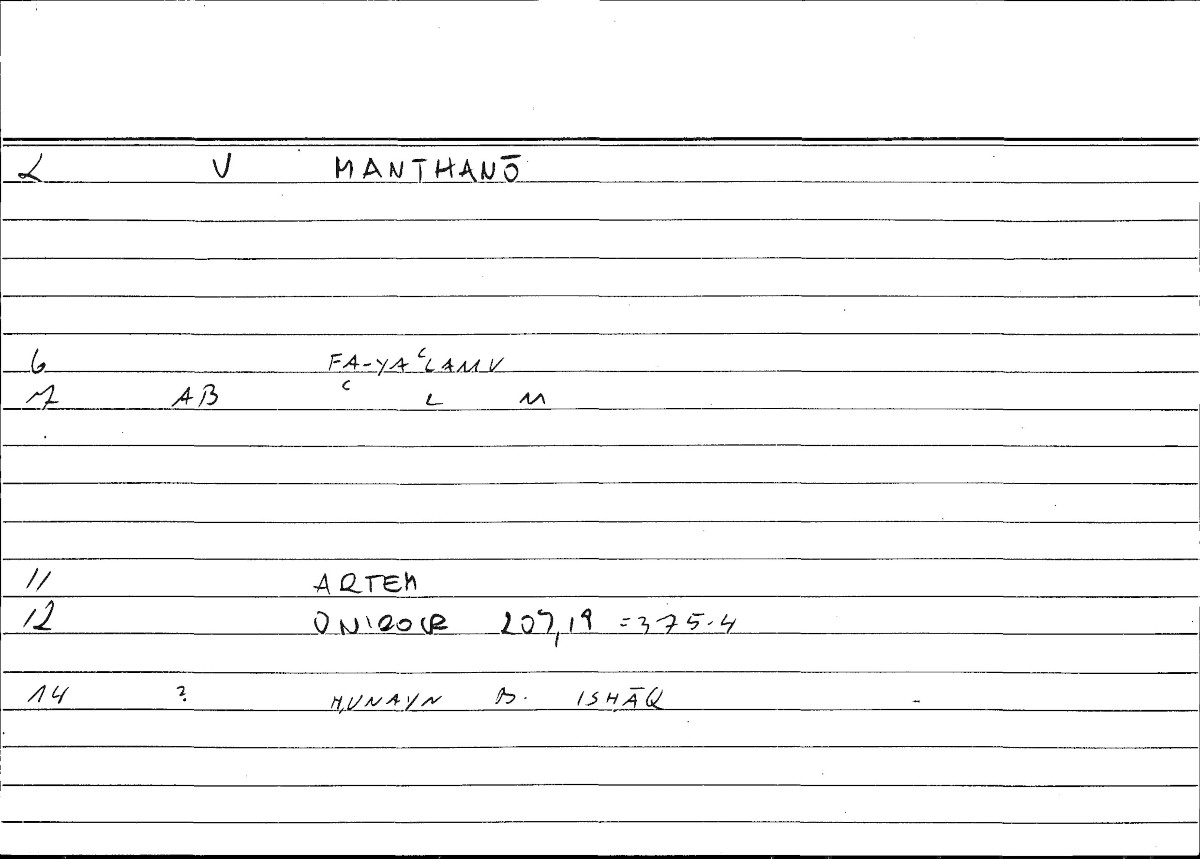 2 V MANTHANŌ
6 FA-YAʿLAMU
7 AB ʿ L M
11 ARTEM
12 ONIROCR 207,19 =375.4
14 ? ḤUNAYN B. ISḤĀQ